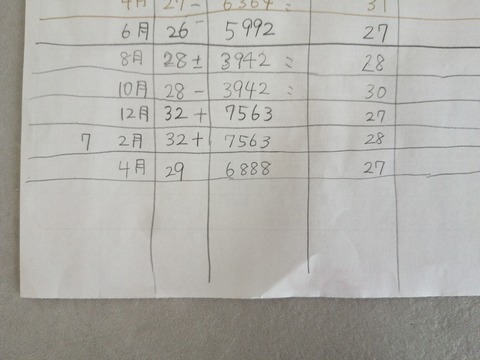 4月 27 - 6364 = 31
6月 26 - 5992 27
8月 28 ± 3942 = 28
10月 28 - 3942 = 30
12月 32 + 7563 27
7 2月 32 + 7563 28
4月 29 6888 27